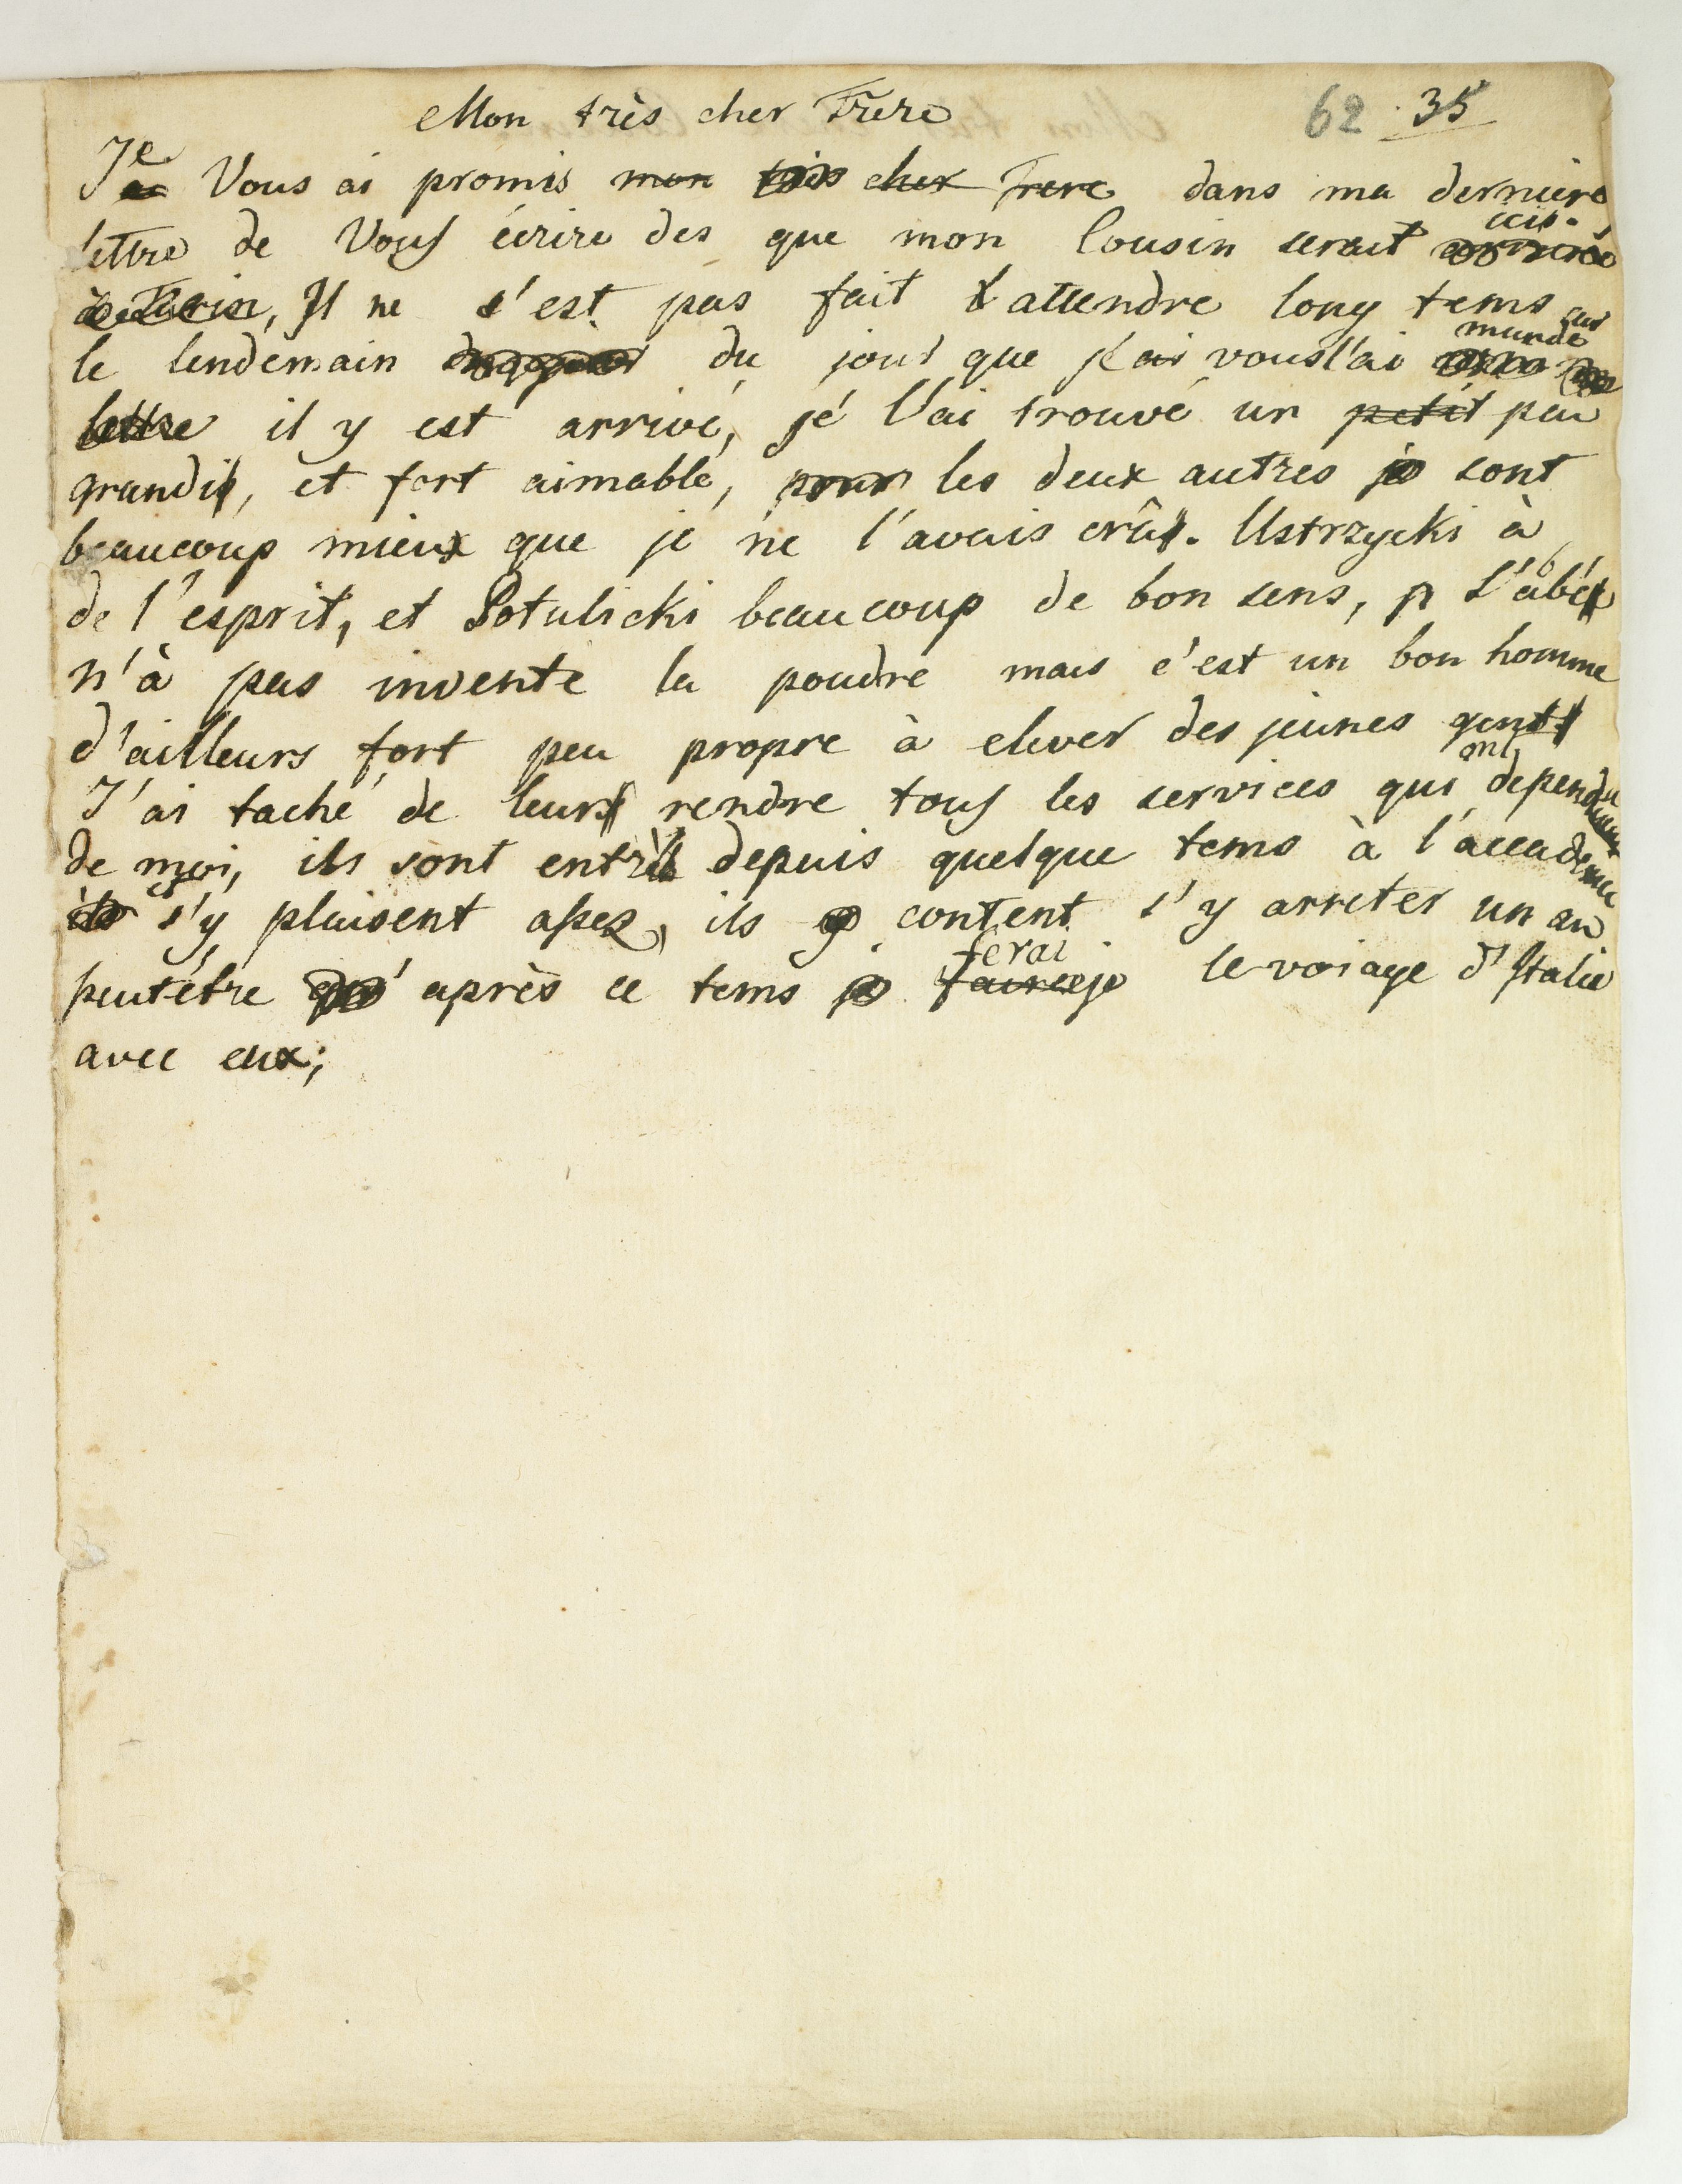 Mon très cher Frere
62 35
Je Vous ai promis mon très cher Frere dans ma derniere
ici
lettre de Vous écrire des que mon Cousin serait arrivée
à Turin, Il ne s'est pas fait attendre long tems car
mandé
le lendemain du jour que j'ai vous l'ai
lettre il y est arrivé, jé l'ai trouvé un petit peu
grandi, et fort aimable, pour les deux autres je sont
beaucoup mieux que je ne l'avais crû. Ustrzycki à
de l'esprit, et Potulicki beaucoup de bon sens, L'abé
n'à pas invente la poudre mais c'est un bon homme
d'ailleurs fort peu propre à elever des jeunes gens
ont
J'ai taché de leur rendre tous les services qui dependu
de moi, ils sont entré depuis quelque tems à l'accademie
et
ils s'y plaisent assez, ils content s'y arreter un an
ferai
peutétre après ce tems je faire je le voiage d'Italie
avec eux;